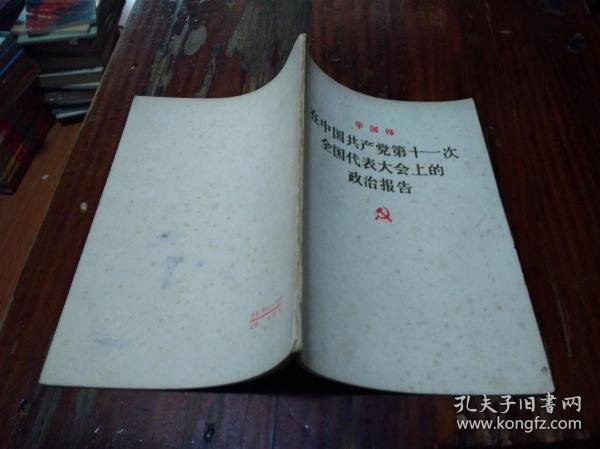 华国锋
在中国共产党第十一次
全国代表大会上的
政治报告
孔夫子旧书网
www.kongfz.com